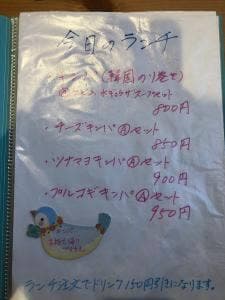 今日のランチ
・キンパ(韓国のり巻き)
水キョウザスープセット
800円
・チーズキンパⒶセット
850円
・ツナマヨキンパⒶセット
900円
・プルコギキンパⒶセット
950円
ランチ注文でドリンク150円引きになります。